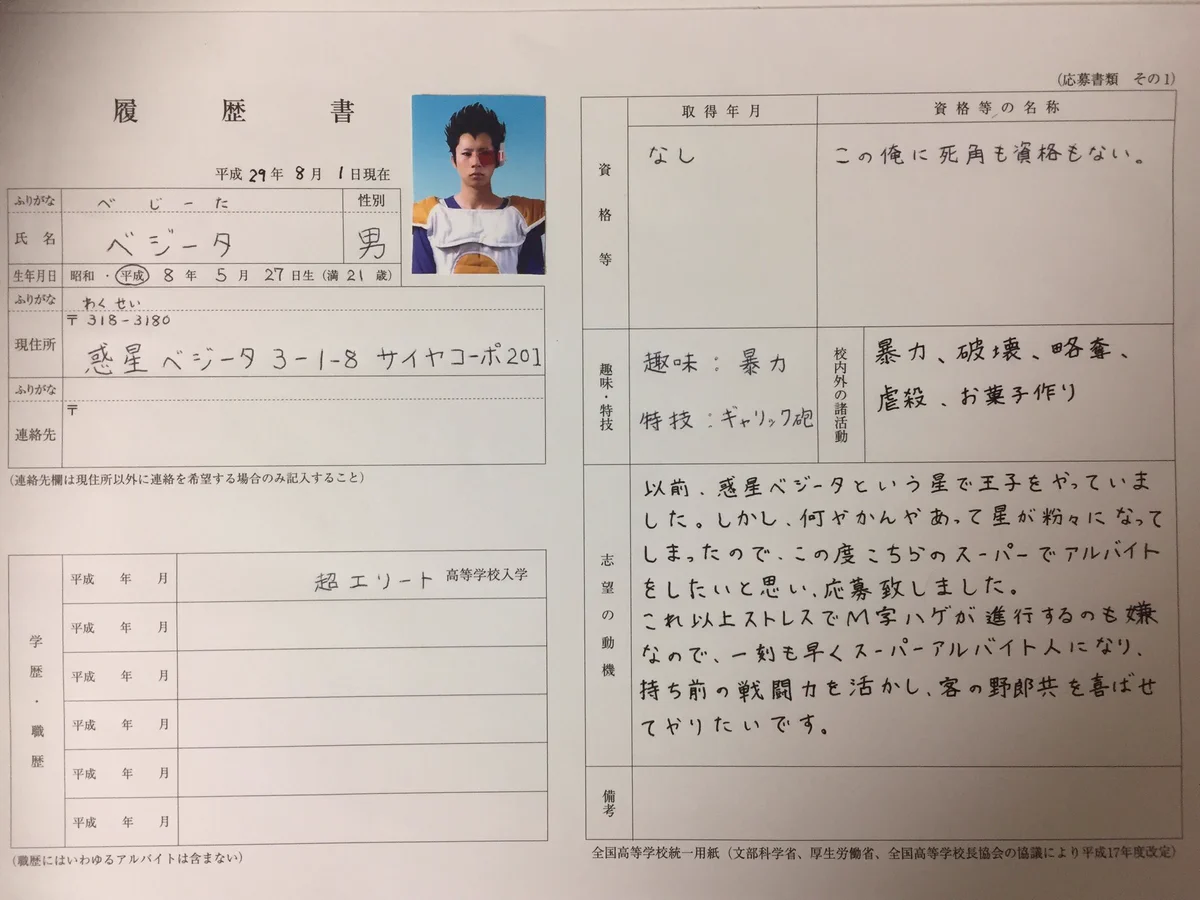 履歴書
平成 29年 8月 1日現在
ふりがな べじーた 性別
氏名 ベジータ 男
生年月日 昭和・平成 8年 5月 27日生 (満 21 歳)
ふりがな わくせい
現住所 〒 318-3180
惑星ベジータ 3-1-8 サイヤコーポ201
ふりがな
連絡先 〒
(連絡先欄は現住所以外に連絡を希望する場合のみ記入すること)
学歴・職歴
平成 年 月 超エリート 高等学校入学
平成 年 月
平成 年 月
平成 年 月
平成 年 月
平成 年 月
(職歴にはいわゆるアルバイトは含まない)
(応募書類 その1)
資格等 取得年月 資格等の名称
なし この俺に死角も資格もない。
趣味・特技
趣味:暴力
特技:ギャリック砲
校内外の諸活動
暴力、破壊、略奪、
虐殺、お菓子作り
志望の動機
以前、惑星ベジータという星で王子をやっていま
した。しかし、何やかんやあって星が粉々になって
しまったので、この度こちらのスーパーでアルバイト
をしたいと思い、応募致しました。
これ以上ストレスでM字ハゲが進行するのも嫌
なので、一刻も早くスーパーアルバイト人になり、
持ち前の戦闘力を活かし、客の野郎共を喜ばせ
てやりたいです。
備考
全国高等学校統一用紙(文部科学省、厚生労働省、全国高等学校長協会の協議により平成17年度改定)